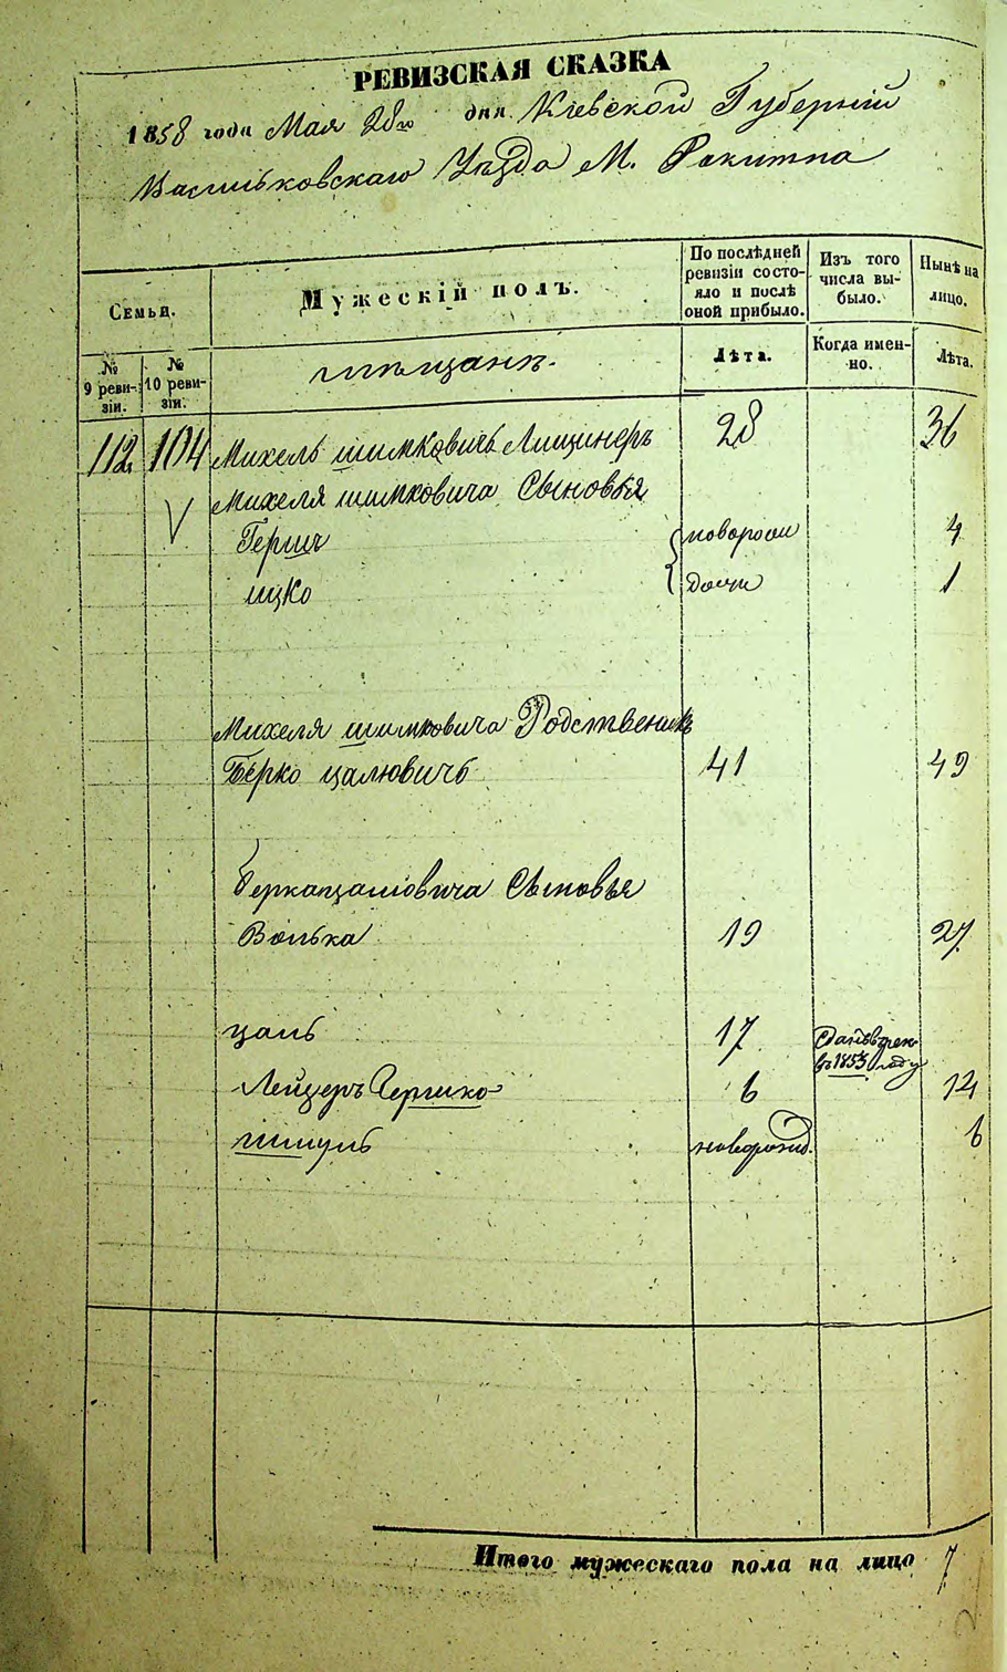 РЕВИЗСКАЯ СКАЗКА
1858 года Мая 28го дня Кіевской Губерніи
Васильковскаго Уѣзда М. Ракитна
Семьи.
Мужескій полъ.
По послѣдней ревизіи состо-
яло и послѣ
оной прибыло.
Изъ того
числа вы-
было.
Нынѣ на
лицо.
№
9 реви-
зіи.
№
10 реви-
зіи.
мѣщанъ.
Лѣта.
Когда имен-
но.
Лѣта.
112 104 Михель шимковичъ Лищинеръ 28 36
Михеля шимковича Сыновья
Герш 4
ицко 1
Михеля шимковича Родственикъ
Берко цалювичъ 41 49
Беркацалювича Сыновья
Волька 19 27
цаль 17
въ 1853 году
Лейзеръ Гершко 6 14
шмуль новорожд. 6
Итого мужескаго пола на лицо 7